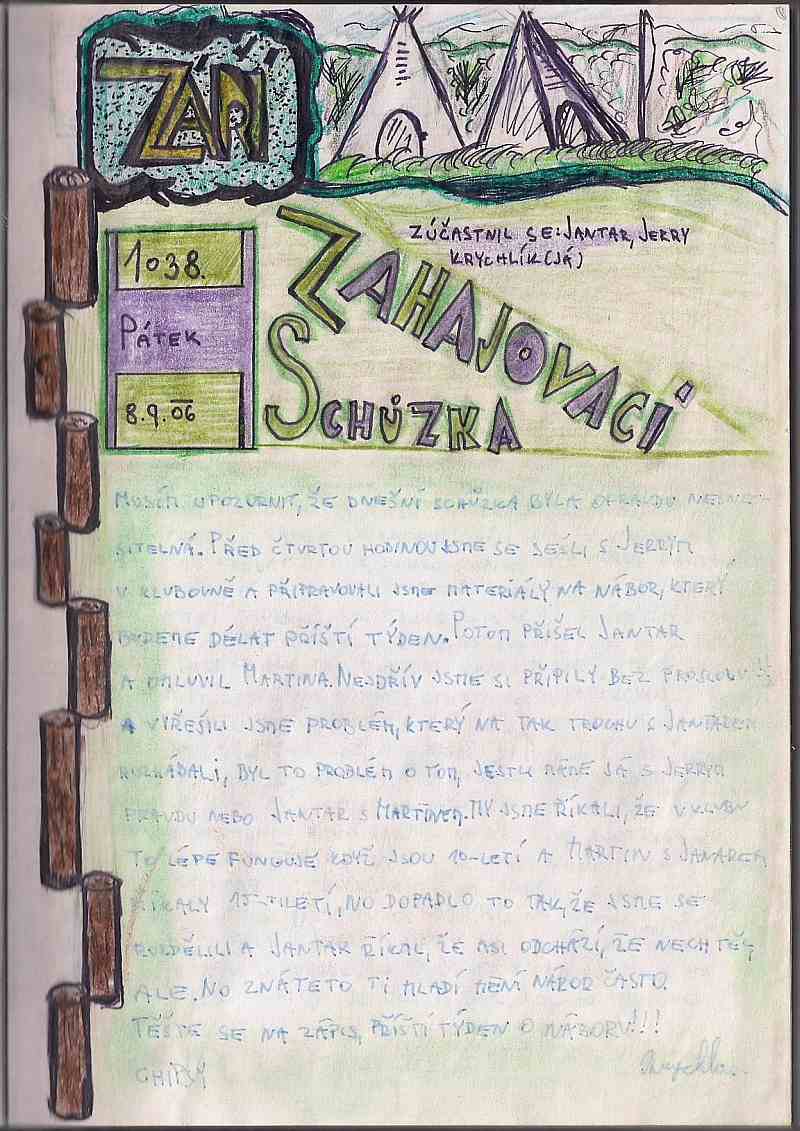 ZÁŘÍ
ZÚČASTNIL SE: JANTAR, JERRY
KRYCHLÍK (JÁ)
1038.
PÁTEK
8.9.06
ZAHAJOVACÍ
SCHŮZKA
MUSÍM UPOZORNIT, ŽE DNEŠNÍ SCHŮZKA BYLA OPRAVDU
SITELNÁ. PŘED ČTVRTOU HODINOU JSME SE SEŠLI S JERRYM
V KLUBOVNĚ A PŘIPRAVOVALI JSME MATERIÁLY NA NÁBOR, KTERÝ
BUDEME DĚLAT PŘÍŠTÍ TÝDEN. POTOM PŘIŠEL JANTAR
A OMLUVIL MARTINA. NEJDŘÍV JSME SI PŘIPILY BEZ PROSLOVU!!
A VYŘEŠILI JSME PROBLÉM, KTERÝ NA TAK TROCHU S JANTAREM
BYL TO PROBLÉM O TOM, JESTLI MÁME JÁ S JERRYM
PRAVDU NEBO JANTAR S MARTINEM. MY JSME ŘÍKALI, ŽE V KLUBY
TO LÉPE FUNGUJE KDYŽ JSOU 10-LETÍ A MARTIN S JANAREM
ŘÍKALY 15-TILETÍ, NO DOPADLO TO TAK, ŽE JSME SE
ROZDĚLILI A JANTAR ŘÍKAL, ŽE ASI ODCHÁZÍ, ŽE NECHTĚL,
ALE. NO ZNÁTE TO TI MLADÍ MĚNÍ NÁZOR ČASTO.
TĚŠTE SE NA ZÁPIS, PŘÍŠTÍ TÝDEN O NÁBORU!!!